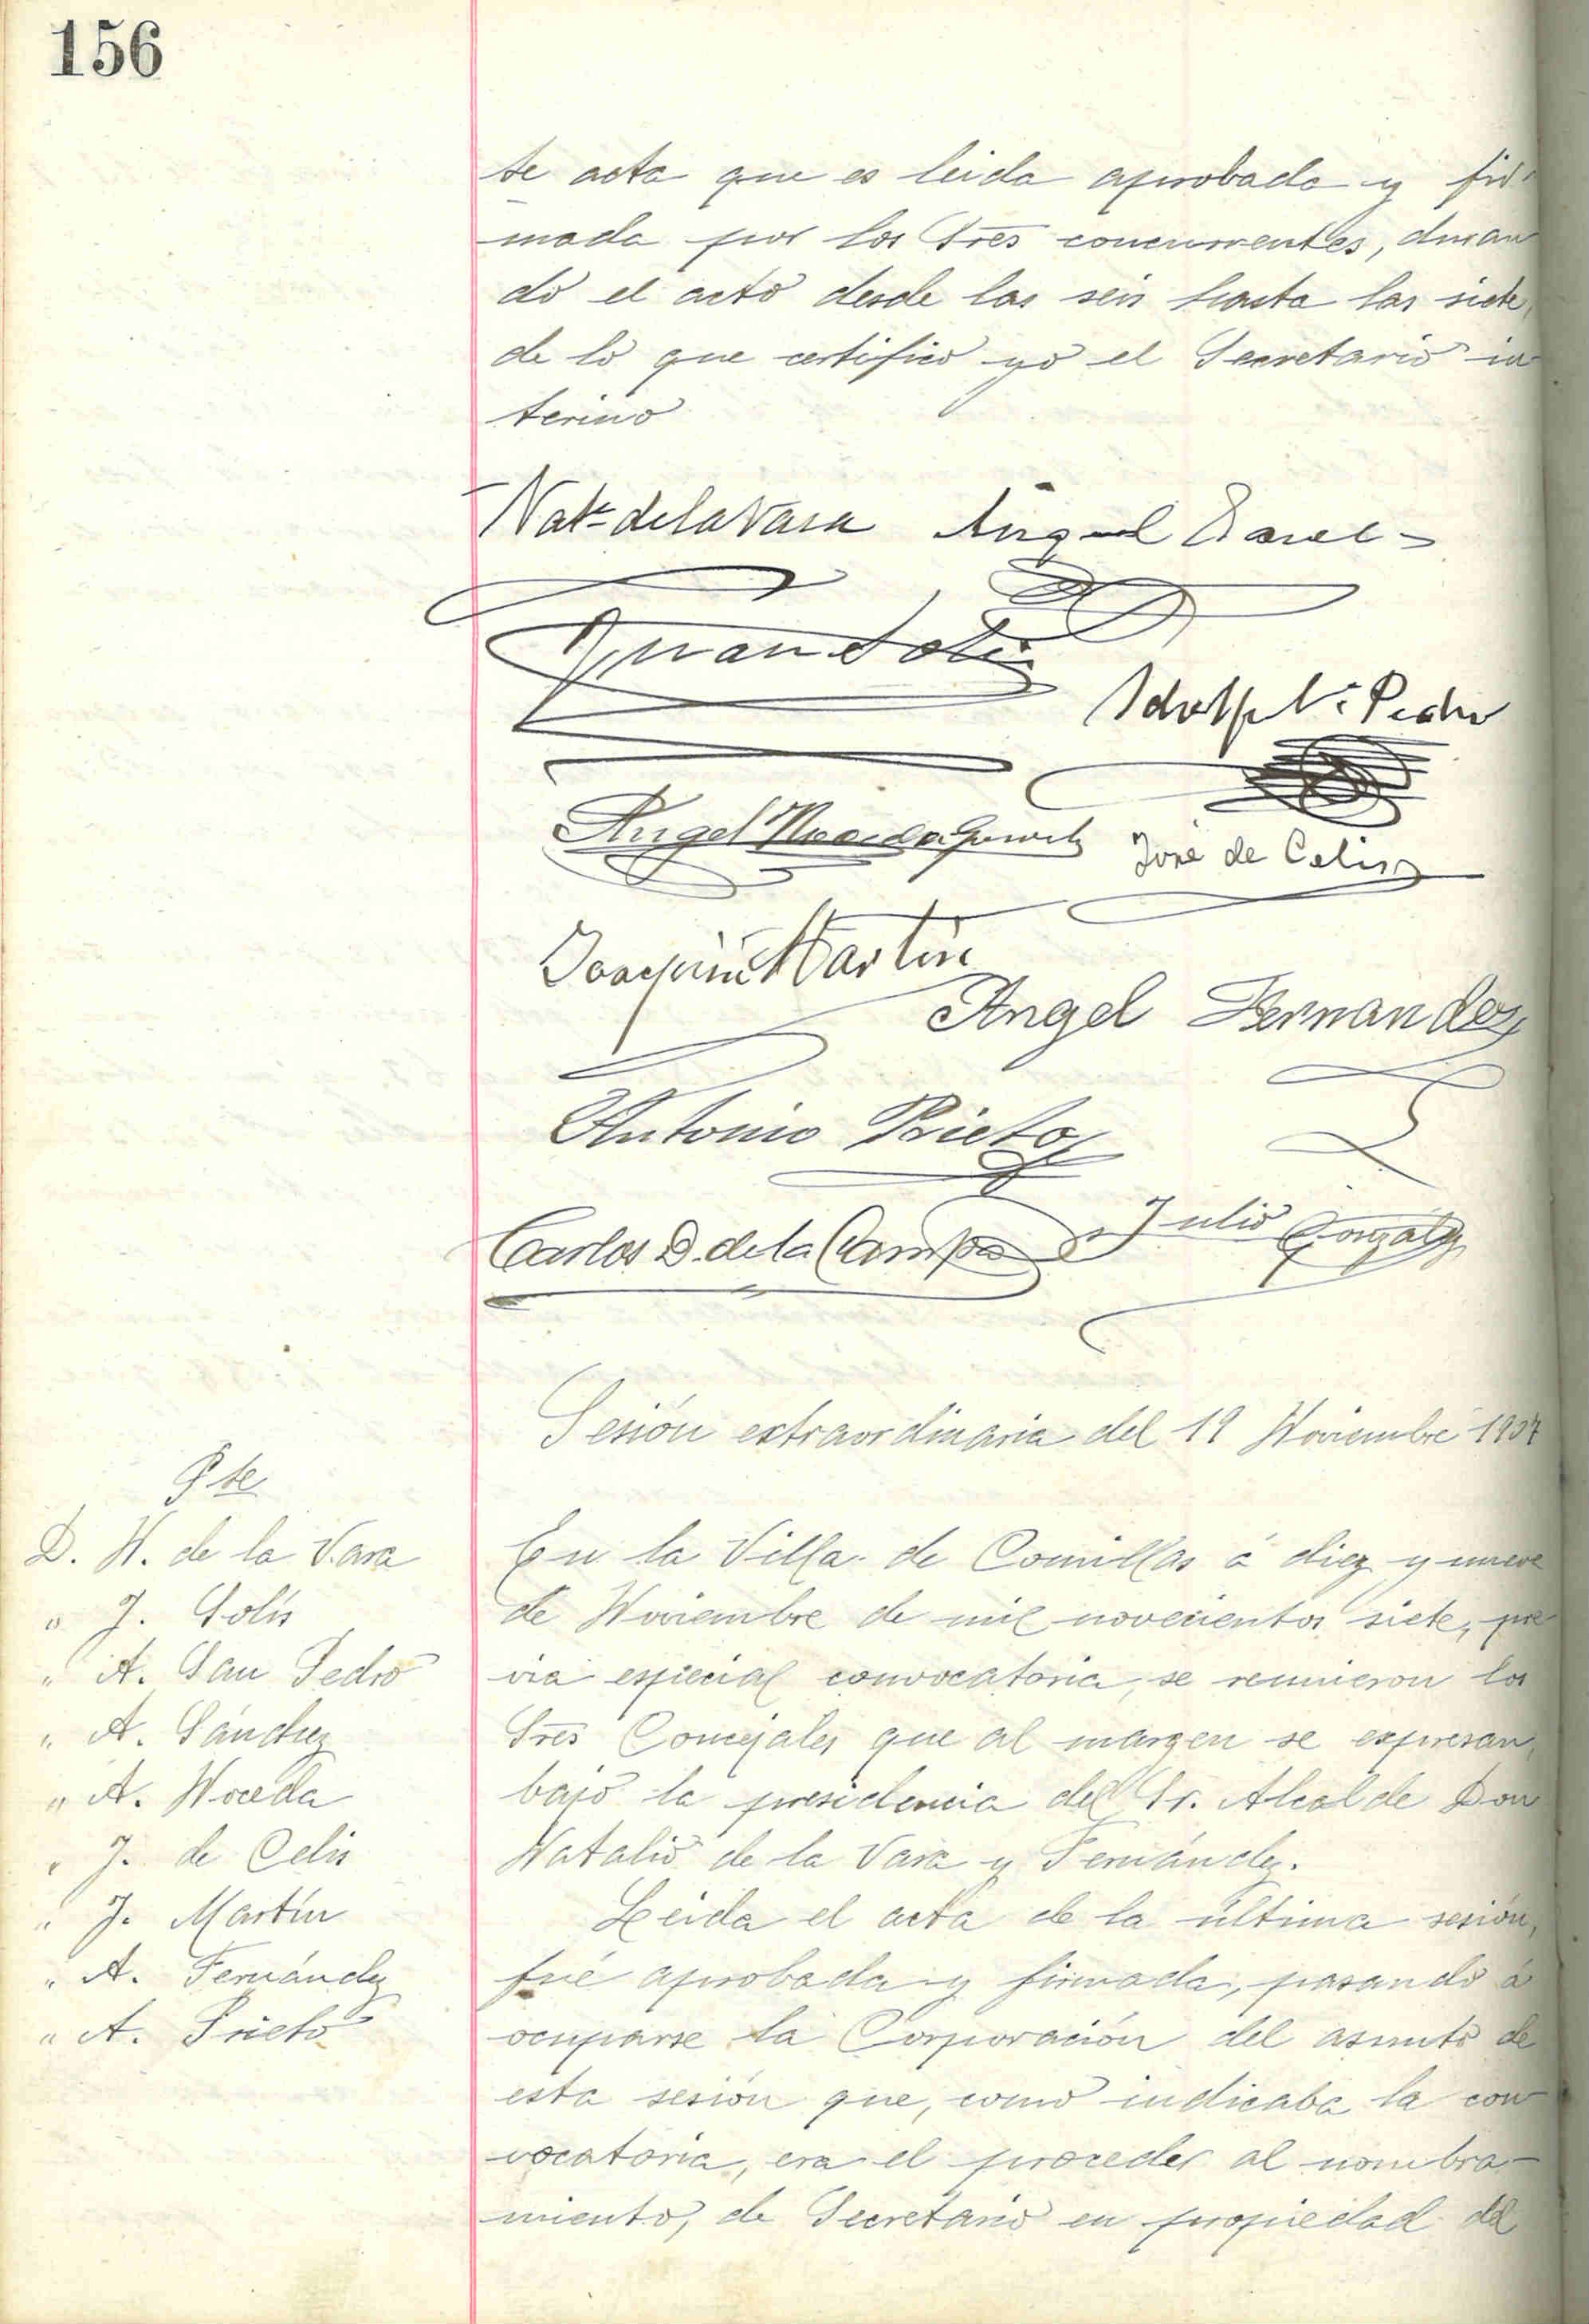 156
te acta que es leida aprobada y fir-
mada por los Sres concurrentes, duran
do el acto desde las seis hasta las siete,
de lo que certifico yo el Secretario in
terino
Nat.º de la Vara Angel Sanc
Juan Solis
Adolfo S. Pedro
Angel Noceda José de Celis
Joaquin Martin
Angel Fernandez
Antonio Prieto
Carlos D. de la Campa Julio Gonzalez
Sesión extraordinaria del 19 Noviembre 1907
Pte
D. N. de la Vara
" J. Solís
" A. San Pedro
" A. Sánchez
" A. Noceda
" J. de Celis
" J. Martín
" A. Fernández
" A. Prieto
En la Villa de Comillas á diez y nueve
de Noviembre de mil novecientos siete, pre
via especial convocatoria, se reunieron los
Sres Concejales que al margen se expresan,
bajo la presidencia del Sr. Alcalde Don
Natalio de la Vara y Fernández.
Leida el acta de la última sesión,
fué aprobada y firmada, pasando á
ocuparse la Corporación del asunto de
esta sesión que, como indicaba la con
vocatoria, era el proceder al nombra-
miento, de Secretario en propiedad del